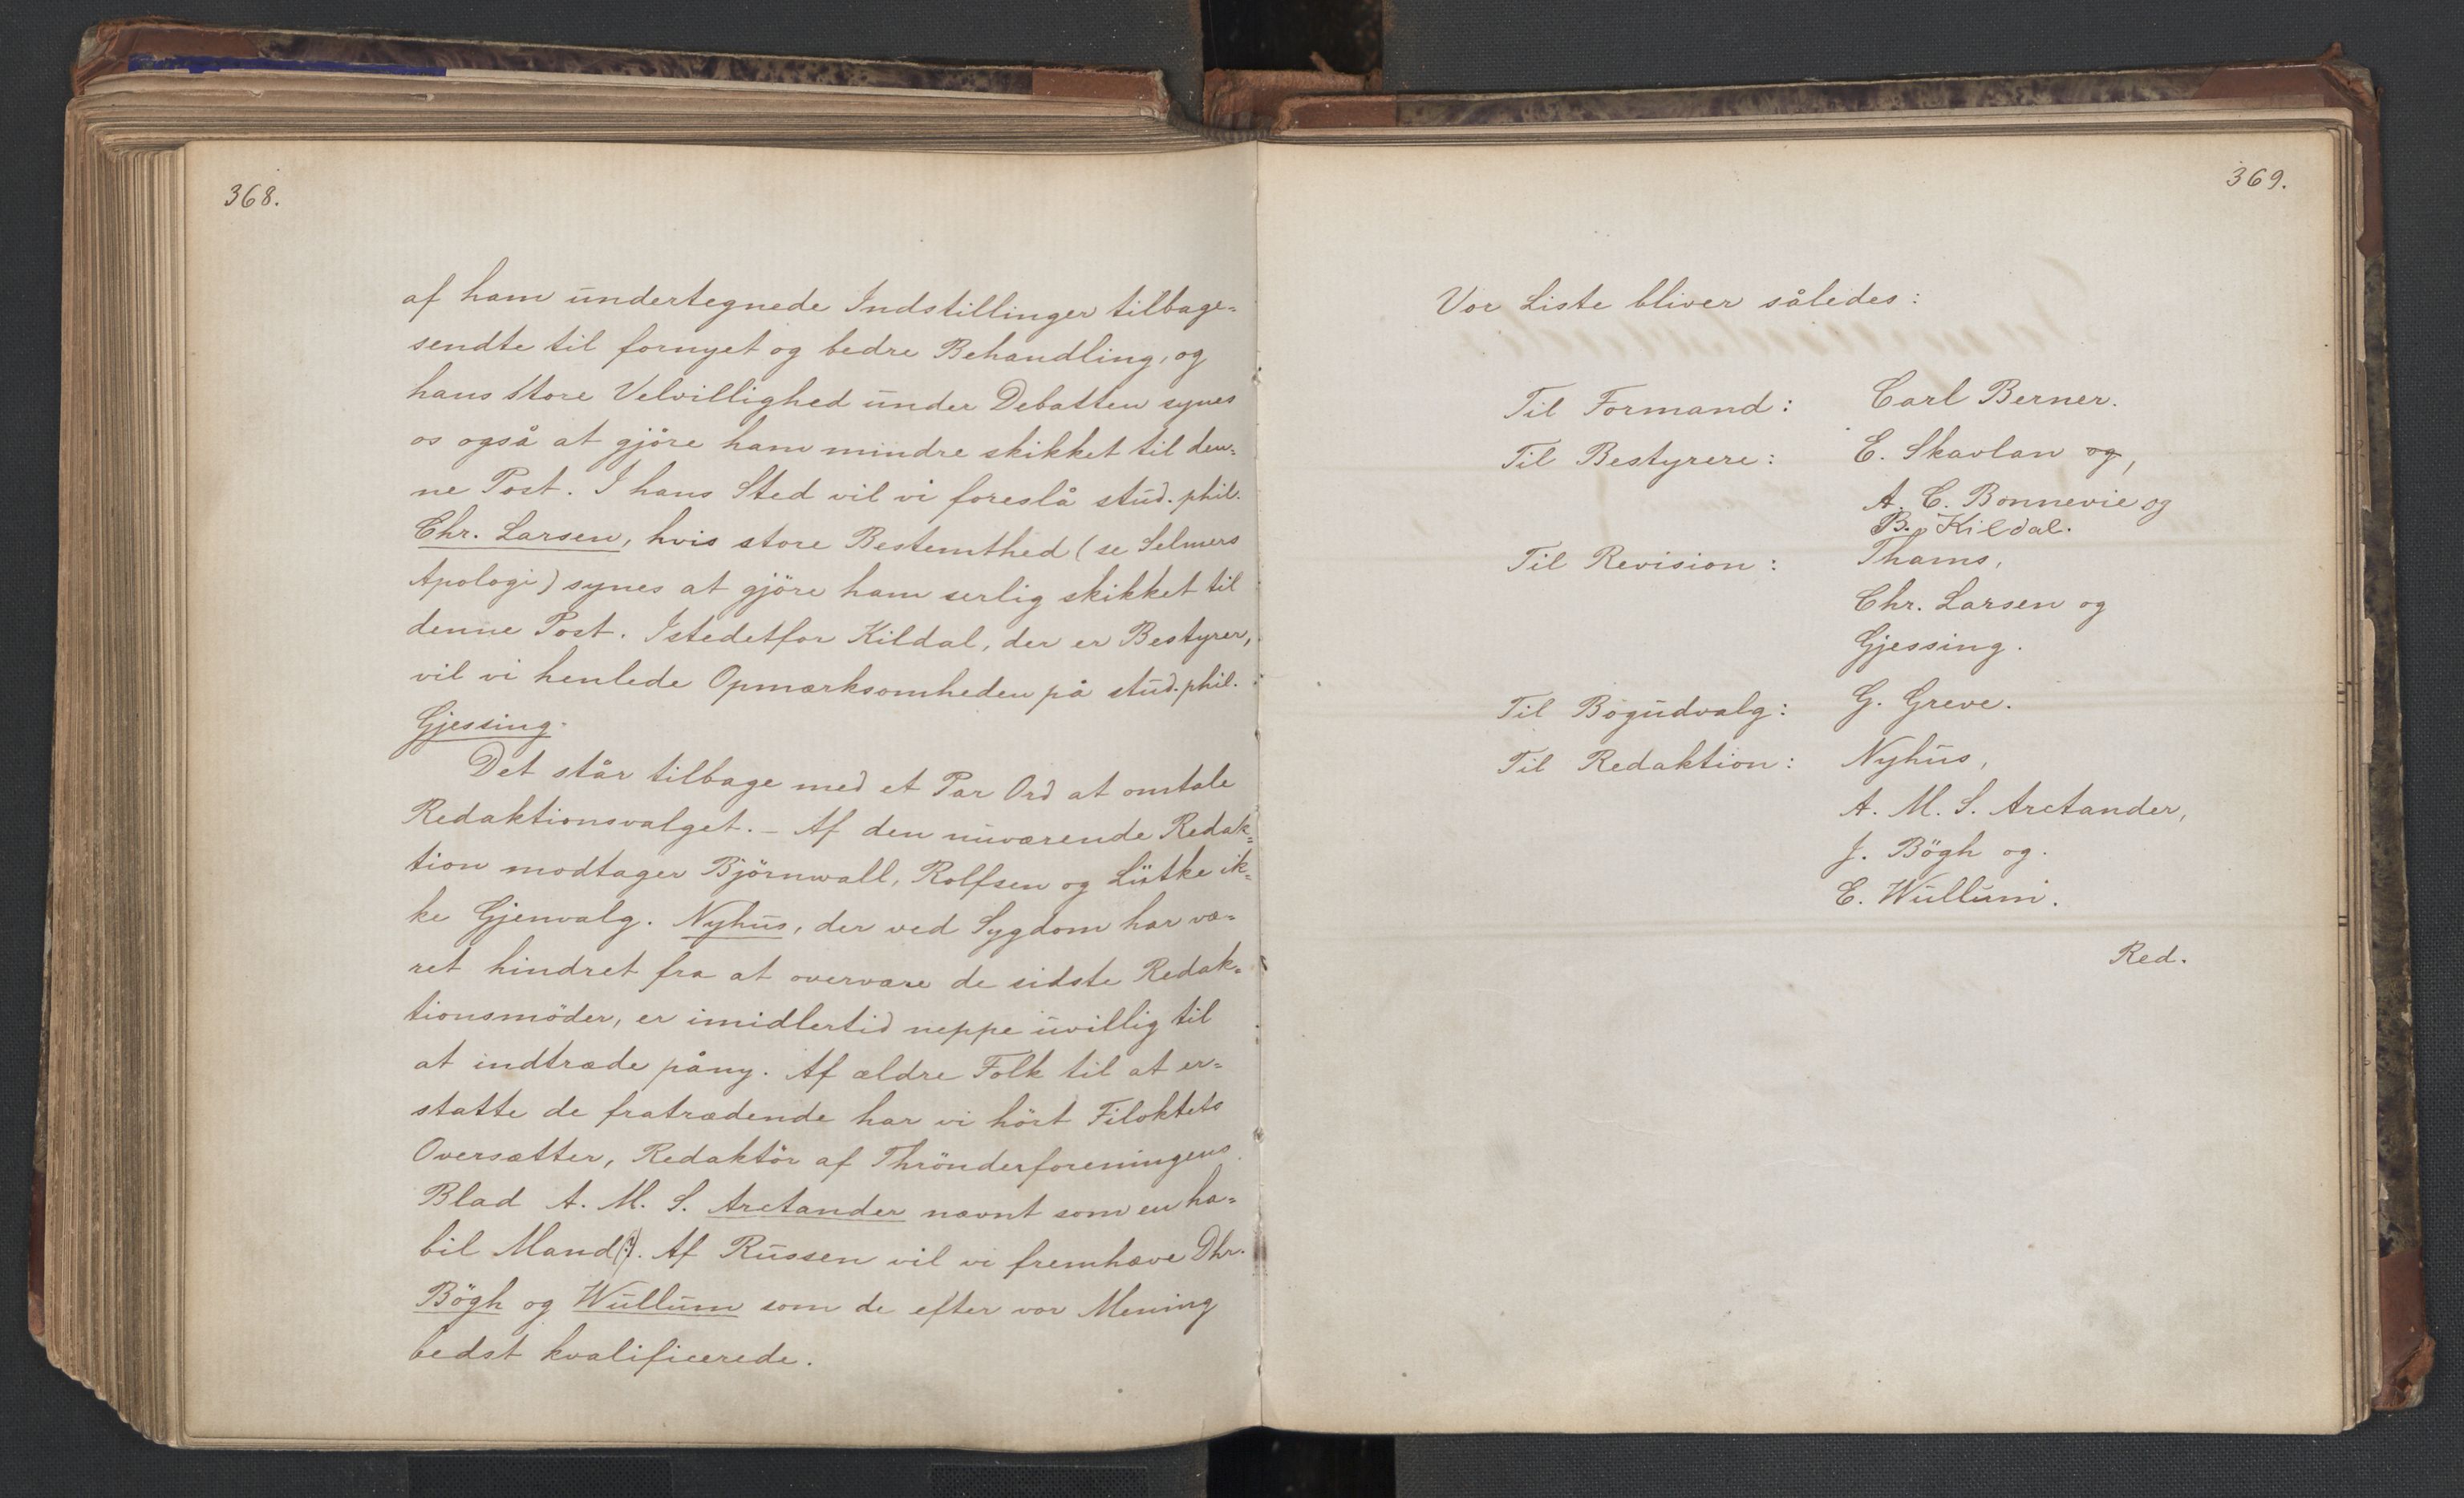 368.
af ham undertegnede Indstillinger tilbage=
sendte til fornyet og bedre Behandling, og
hans store Velvillighed under Debatten synes
os også at gjöre ham mindre skikket til den=
ne Post. I hans Sted vil vi foreslå stud. phil.
Chr. Larsen, hvis store Bestemthed (se Selmers
Apologi) synes at gjöre ham serlig skikket til
denne Post. Istedetfor Kildal, der er Bestyrer,
vil vi henlede Opmærksomheden på stud. phil.
Gjessing.
Det står tilbage med et Par Ord at omtale
Redaktionsvalget. – Af den nuværende Redak=
tion modtager Björnwall, Rolfsen og Lütke ik=
ke Gjenvalg. Nyhus, der ved Sygdom har væ=
ret hindret fra at overvære de sidste Redak=
tionsmöder, er imidlertid neppe uvillig til
at indtræde påny. Af ældre Folk til at er=
statte de fratrædende har vi hört Filoktets
Oversætter, Redaktör af Thrönderforeningens
Blad A. M. S. Arctander nævnt som en ha=
bil Mand(?). Af Russen vil vi fremhæve Dhr.
Bögh og Wullum som de efter vor Mening
bedst kvalificerede.
369.
Vor Liste bliver således:
Til Formand: Carl Berner.
Til Bestyrere: E. Skavlan og,
A. C. Bonnevie og
B. Kildal.
Til Revision: Thams,
Chr. Larsen og
Gjessing.
Til Bogudvalg: G. Greve.
Til Redaktion: Nyhus,
A. M. S. Arctander,
J. Bögh og
E. Wullum.
Red.